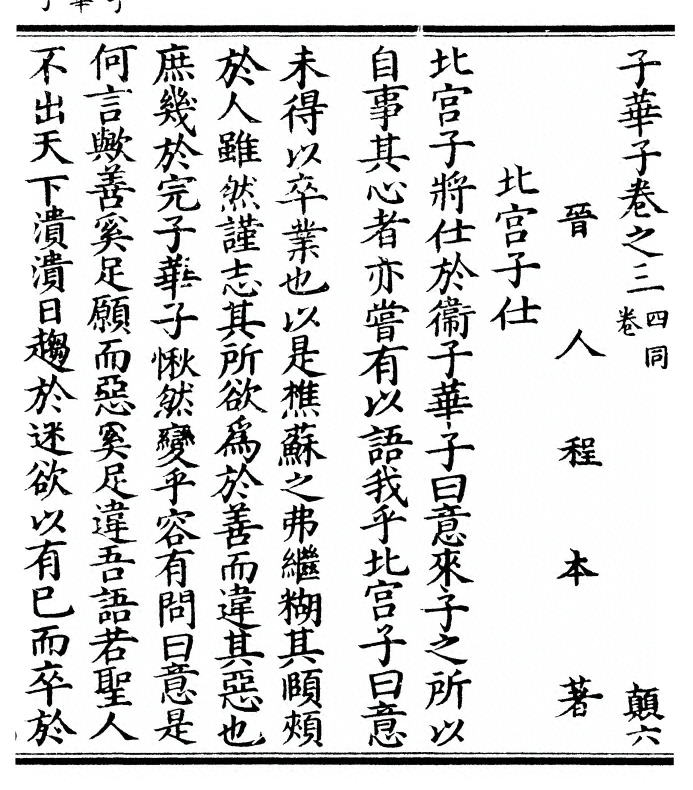 子華子卷之三 四同卷 顛六
晉人程本著
北宫子仕
北宫子將仕於衞子華子曰意來子之所以
自事其心者亦嘗有以語我乎北宫子曰意
未得以卒業也以是樵蘇之弗繼糊其頤頰
於人雖然謹志其所欲爲於善而違其惡也
庶幾於完子華子愀然變乎容有問曰意是
何言歟善奚足願而惡奚足違吾語若聖人
不出天下潰潰日趨於迷欲以有巳而卒於